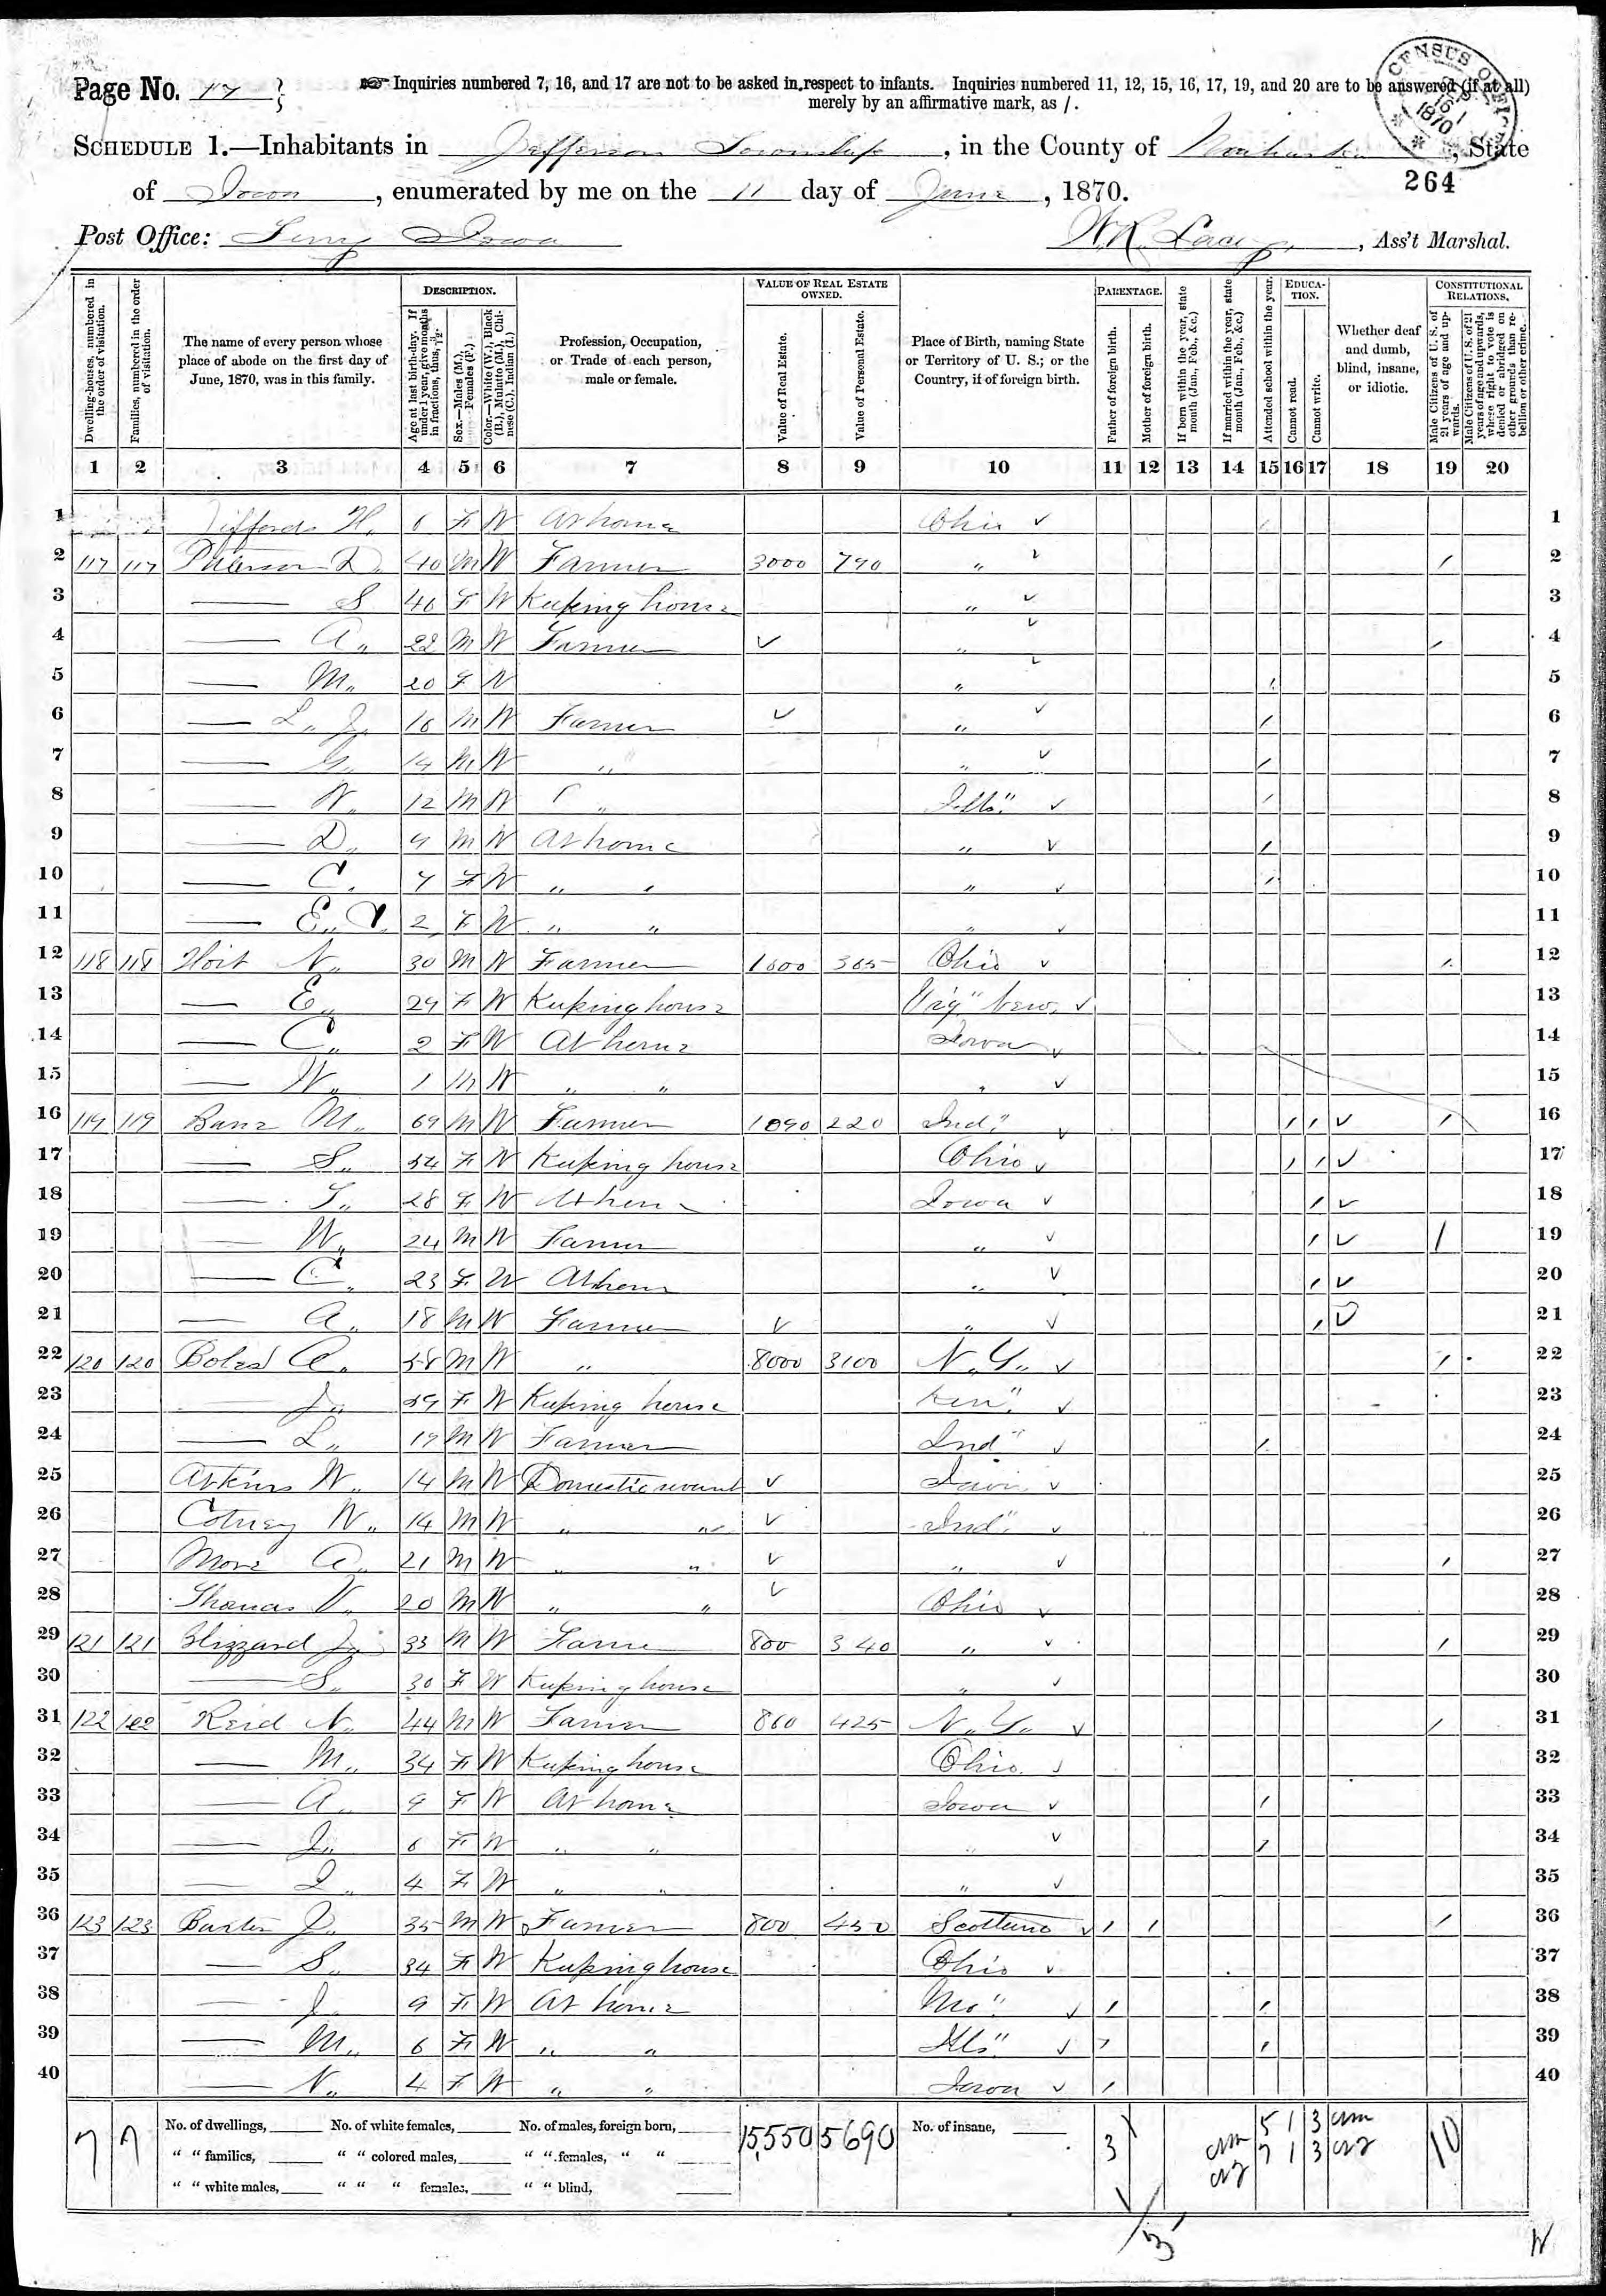 Page No. 17 } Inquiries numbered 7, 16, and 17 are not to be asked in respect to infants. Inquiries numbered 11, 12, 15, 16, 17, 19, and 20 are to be answered (if at all)
merely by an affirmative mark, as /.
CENSUS OFFICE 1870
SCHEDULE 1.—Inhabitants in Jefferson Township, in the County of , State
264
of Iowa, enumerated by me on the 11 day of June, 1870.
Post Office: Iowa W.R. Lacy, Ass't Marshal.
Dwelling-houses, numbered in the order of visitation.
Families, numbered in the order of visitation.
The name of every person whose place of abode on the first day of June, 1870, was in this family.
DESCRIPTION.
Age at last birth-day. If under 1 year, give months in fractions, thus, 3/12.
Sex.—Males (M.), Females (F.)
Color.—White (W.), Black (B.), Mulatto (M.), Chinese (C.), Indian (I.)
Profession, Occupation, or Trade of each person, male or female.
VALUE OF REAL ESTATE OWNED.
Value of Real Estate.
Value of Personal Estate.
Place of Birth, naming State or Territory of U. S.; or the Country, if of foreign birth.
PARENTAGE.
Father of foreign birth.
Mother of foreign birth.
If born within the year, state month (Jan., Feb., &c.)
If married within the year, state month (Jan., Feb., &c.)
Attended school within the year.
EDUCATION.
Cannot read.
Cannot write.
Whether deaf and dumb, blind, insane, or idiotic.
CONSTITUTIONAL RELATIONS.
Male Citizens of U. S. of 21 years of age and upwards.
Male Citizens of U. S. of 21 years of age and upwards, whose right to vote is denied or abridged on other grounds than rebellion or other crime.
1 2 3 4 5 6 7 8 9 10 11 12 13 14 15 16 17 18 19 20
1 H. 6 F W At home Ohio ✓ / 1
2 117 117 D. 40 M W Farmer 3000 790 " ✓ / 2
3 — S 46 F W Keeping house " ✓ 3
4 — A. 22 M W Farmer ✓ " ✓ / 4
5 — M. 20 F W " ✓ / 5
6 — L. J. 16 M W Farmer ✓ " ✓ / 6
7 — G. 14 M W " " ✓ / 7
8 — W. 12 M W " Ills" ✓ / 8
9 — D. 9 M W At home " ✓ / 9
10 — C. 7 F W " " " ✓ / 10
11 — E. 2 F W " " " ✓ 11
12 118 118 Hoit N. 30 M W Farmer 1600 365 Ohio ✓ / 12
13 — E. 29 F W Keeping house ✓ 13
14 — C. 2 F W At home Iowa ✓ 14
15 — W. 1 M W " " " ✓ 15
16 119 119 Bane M. 69 M W Farmer 1090 220 Ind" ✓ / / ✓ / 16
17 — S. 54 F W Keeping house Ohio ✓ / / ✓ 17
18 — T. 28 F W At home Iowa ✓ / ✓ 18
19 — W. 24 M W Farmer " ✓ / ✓ / 19
20 — C. 23 F W At home " ✓ / ✓ 20
21 — A. 18 M W Farmer ✓ " ✓ / ✓ 21
22 120 120 Boles A. 58 M W " 8000 3100 N.Y. ✓ / 22
23 — J. 59 F W Keeping house Ken" ✓ 23
24 — L. 19 M W Farmer Ind" ✓ / 24
25 Atkins W. 14 M W Domestic servant ✓ Iowa ✓ 25
26 Cotney W. 14 M W " " ✓ Ind" ✓ 26
27 More A. 21 M W " " ✓ " ✓ / 27
28 Thomas V. 20 M W " " ✓ Ohio ✓ 28
29 121 121 Blizzard J. 33 M W Farmer 800 340 " ✓ / 29
30 — S. 30 F W Keeping house " ✓ 30
31 122 122 Reid N. 44 M W Farmer 860 425 N.Y. ✓ / 31
32 — M. 34 F W Keeping house Ohio ✓ 32
33 — A. 9 F W At home Iowa ✓ / 33
34 — J. 6 F W " " " ✓ / 34
35 — I. 4 F W " " " ✓ 35
36 123 123 Baxter J. 35 M W Farmer 800 450 Scotland ✓ / / / 36
37 — S. 34 F W Keeping house Ohio ✓ 37
38 — J. 9 F W At home Mo" ✓ / / 38
39 — M. 6 F W " " Ills" ✓ / / 39
40 — N. 4 F W " " Iowa ✓ / 40
7 7 No. of dwellings, No. of white females, No. of males, foreign born, 15,550 5690 No. of insane, 3 5 1 3 10
" " families, " " colored males, " " females, " " 7 1 3
" " white males, " " " females, " " blind,
3
W